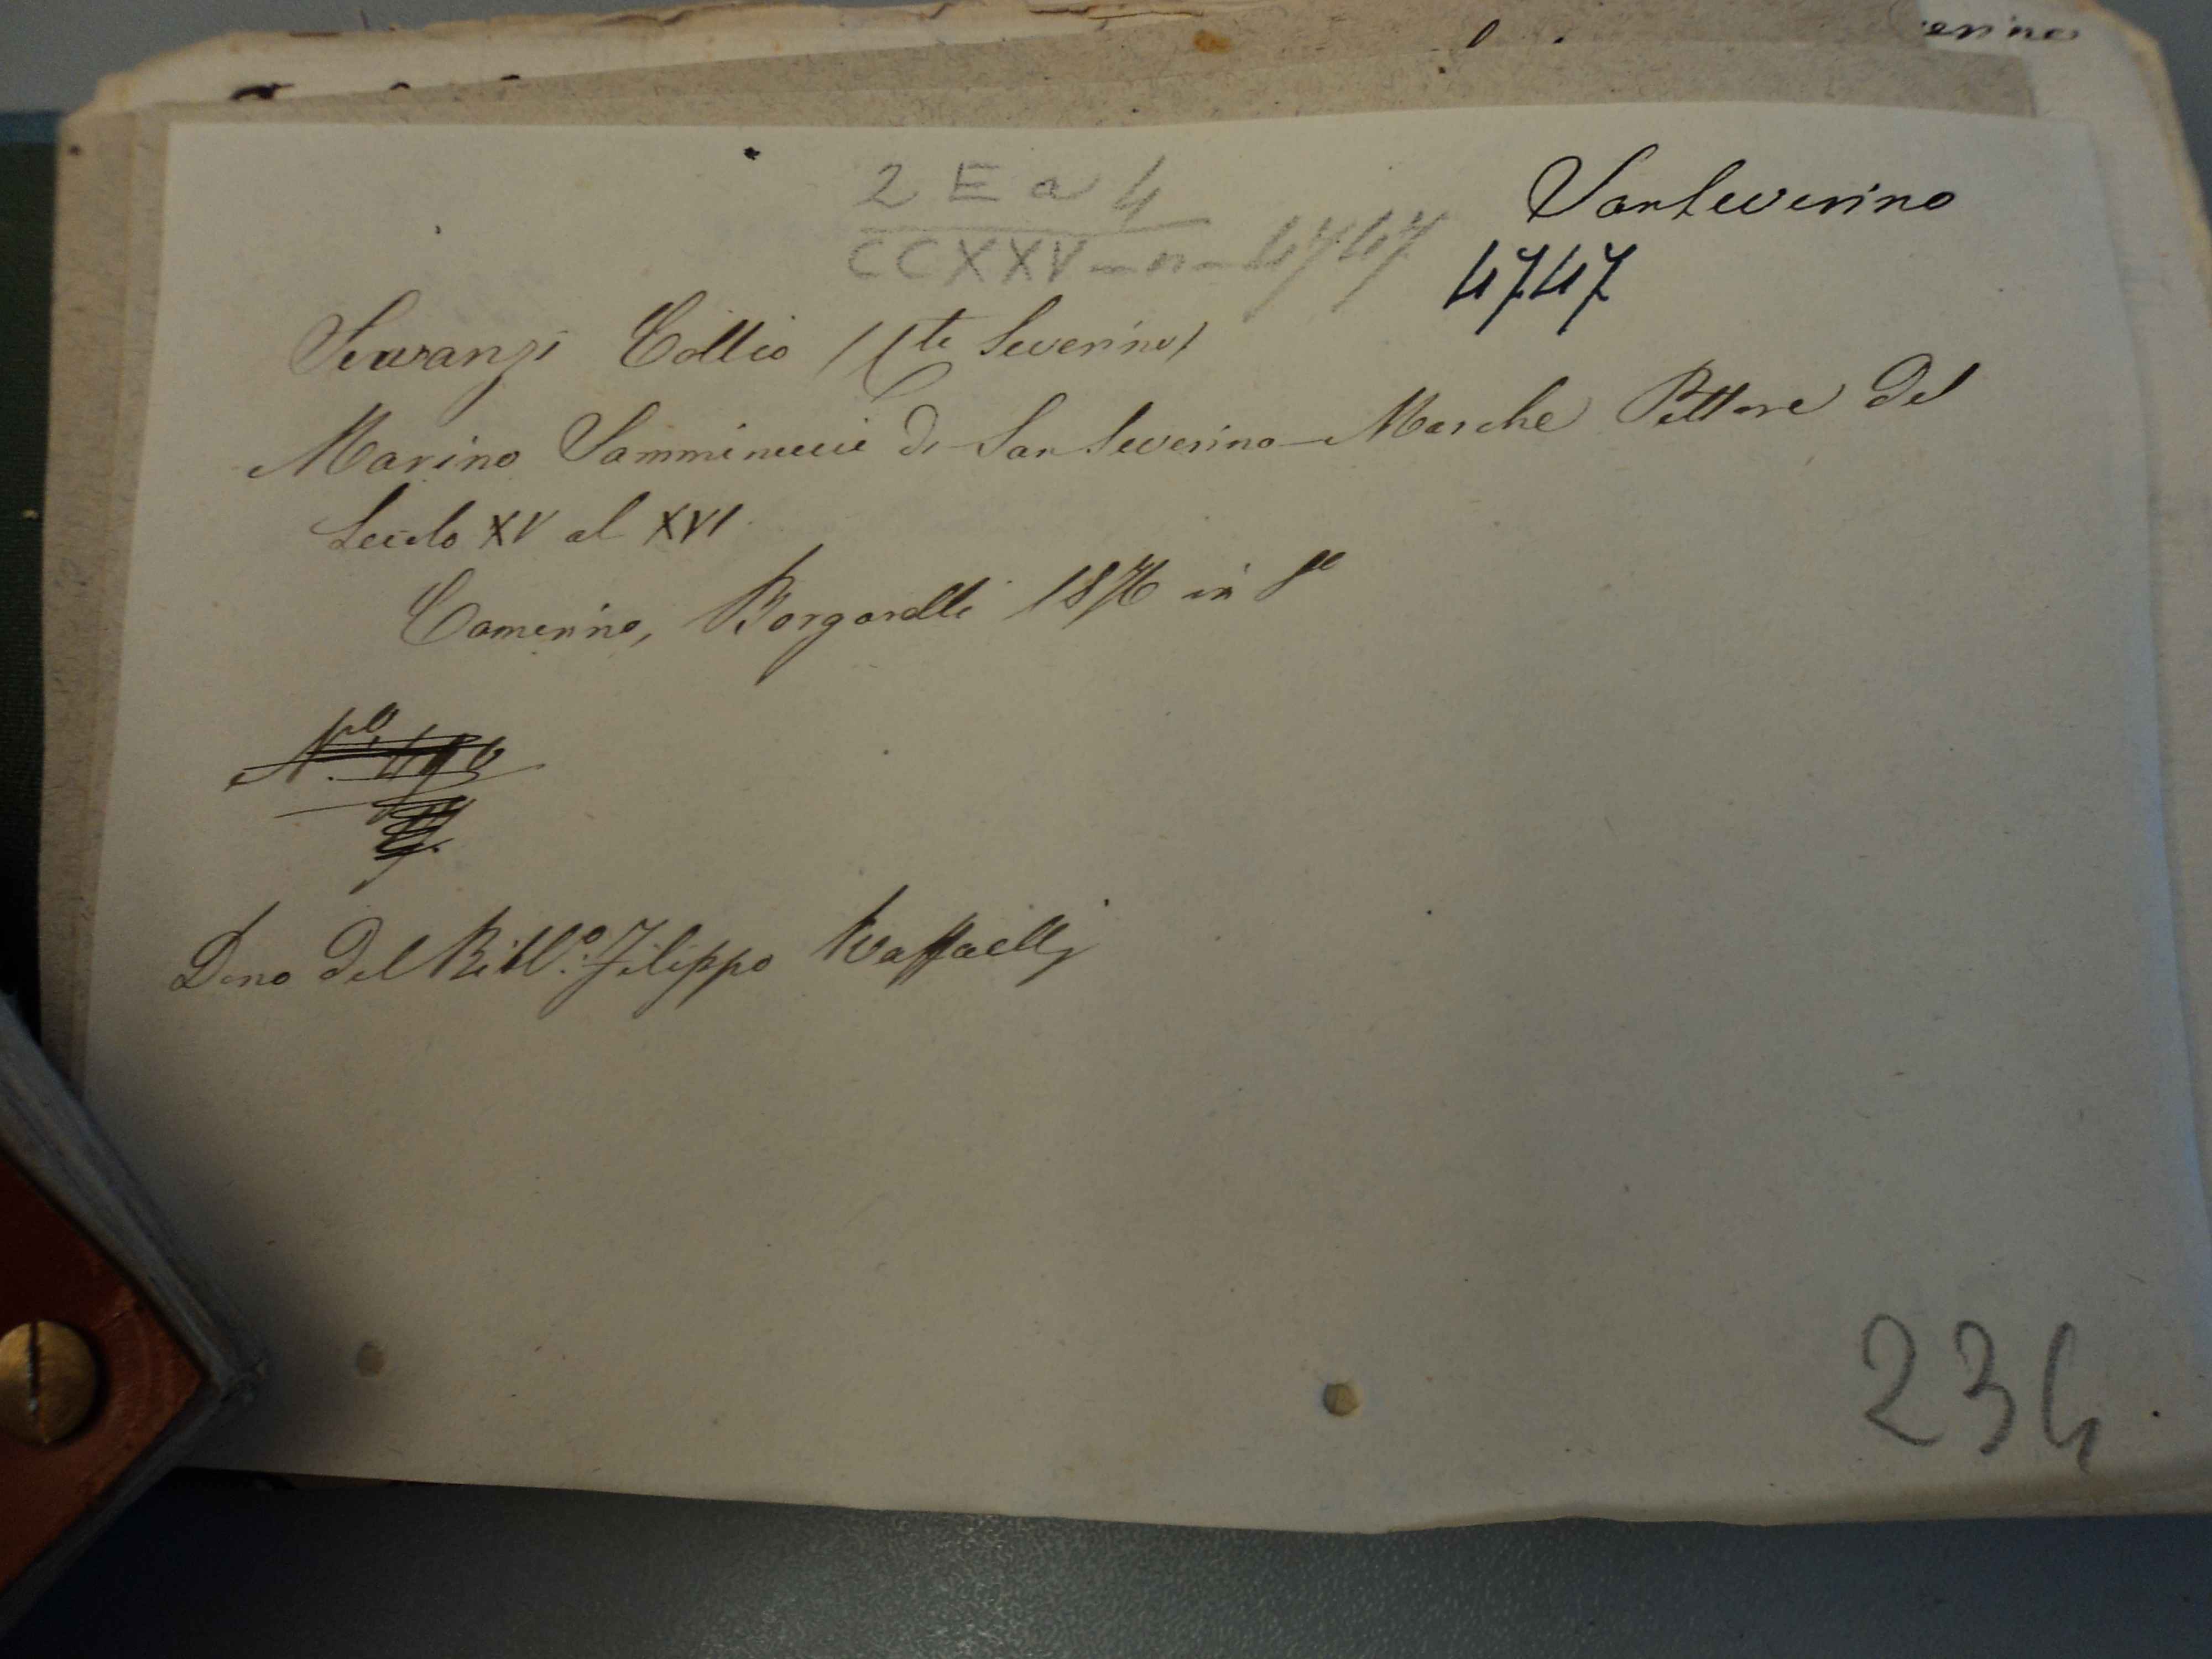 erino
2 E a 4
Sanseverino
CCXXV - n - 4747
4747
Servanzi Collio /(te Severino/
Marino Samminucci di San Severino - Marche Pittore del
Secolo XV al XVI
Camerino, Borgarelli 1876 in 8°
N.°
Dono del Bibl.° Filippo Raffaelli
234